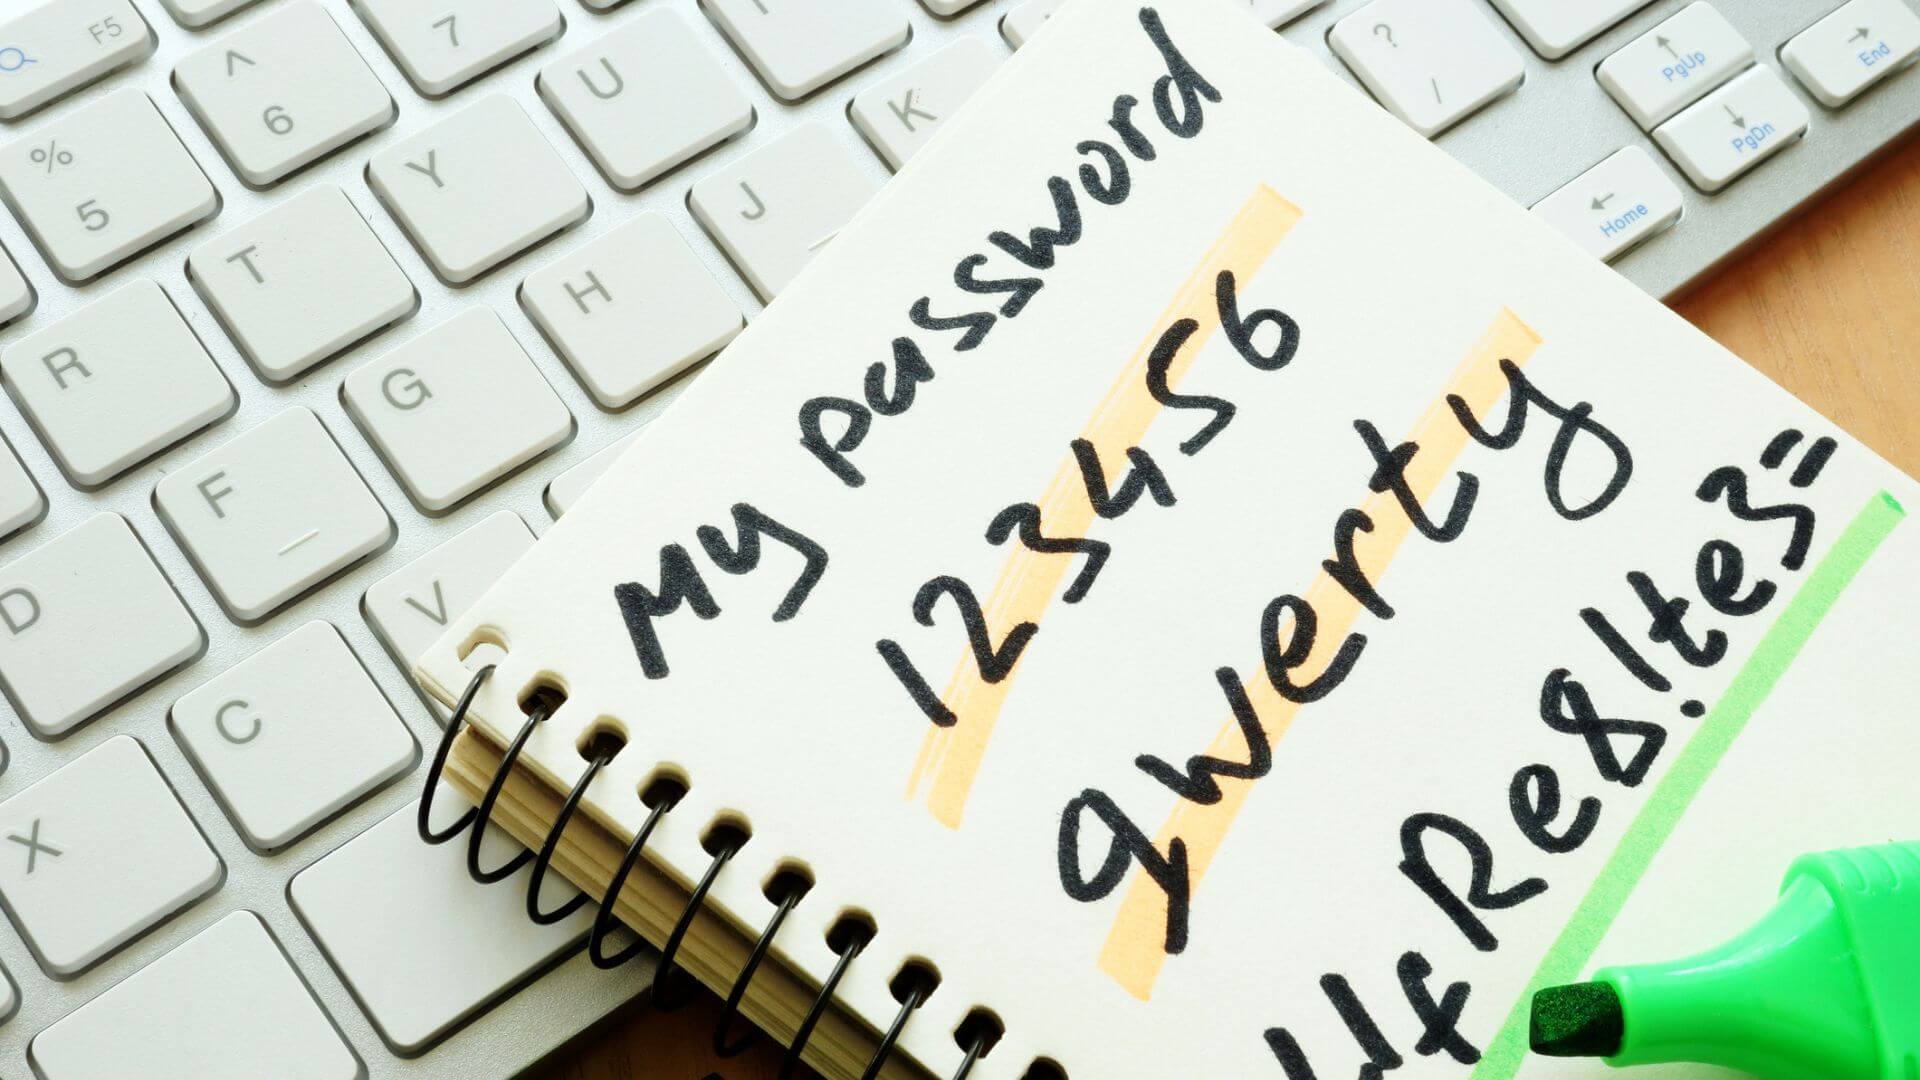 My password
123456
qwerty
Re8!te3=
F5
^
6
7
U
K
?
/
PgUp
PgDn
End
Home
%
5
Y
J
T
H
R
G
F
D
V
C
X